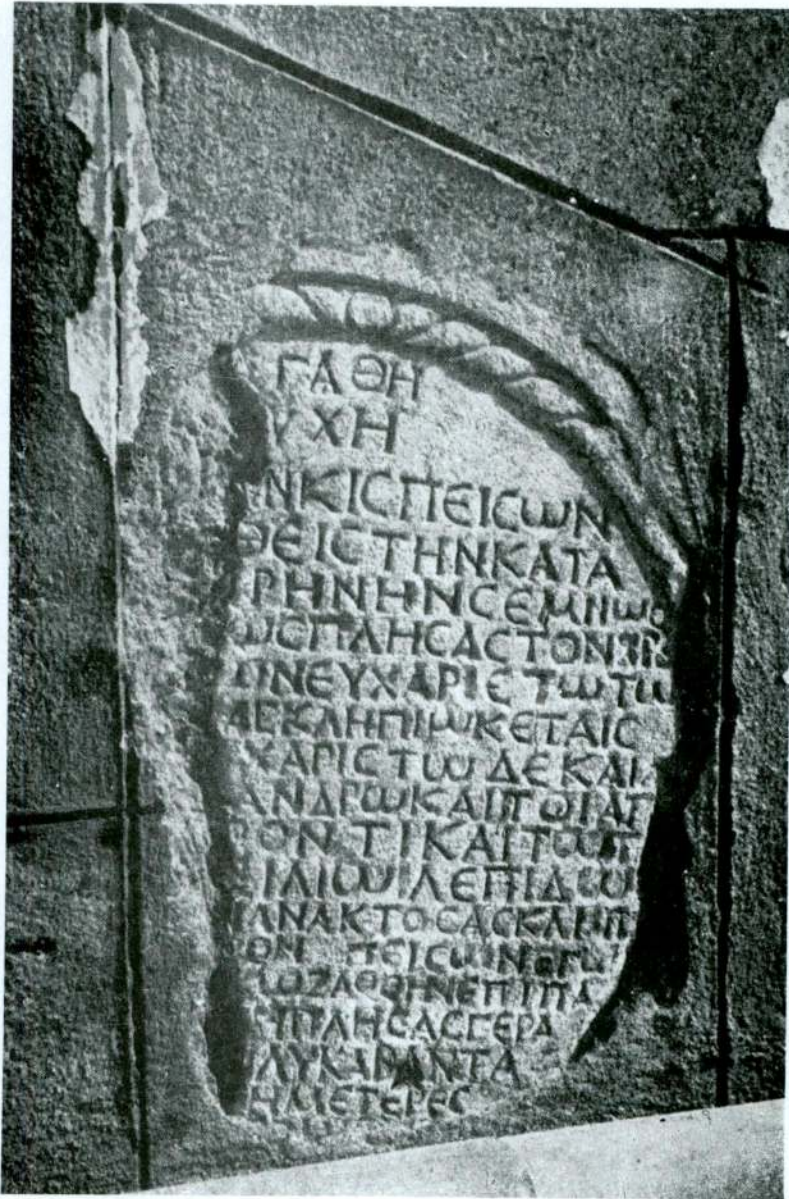 ΓΑΘΗ
ΥΧΗ
ΝΚΙСΠΕΙСωΝ
ΘΕΙСΤΗΝΚΑΤΑ
ΡΗΝΗΝСΕΜΝω
ωСΠΛΗСΑСΤΟΝ
ΝΕΥΧΑΡΙΣΤωΤω
ΑСΚΛΗΠΙωΚΕΤΑΙС
ΧΑΡΙСΤωΔΕΚΑΙ
ΑΝΔΡωΚΑΙΤωΙΑΓ
ΟΝΤΙΚΑΙΤω
ΙΛΙωΛΕΠΙΔω
ΑΝΑΚΤΟСΑСΚΛΗΠ
ΟΝ ΠΕΙСωΝΕΓω
ωΖΑΘΕΗΝΕΠΙΠΑ
ΠΛΗСΑСΓΕΡΑ
ΛΥΚΑΒΑΝΤΑ
ΗΜΕΤΕΡΕС